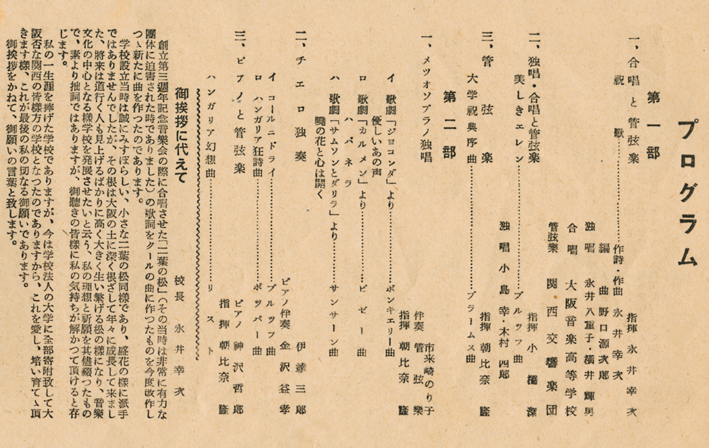 プログラム
第一部
一、合唱と管弦楽　指揮 永井幸次
祝歌……作詩・作曲 永井幸次
編曲 野口源次郎
独唱 永井八重子・横井輝男
合唱 大阪音楽高等学校
管弦楽 関西交響楽団
二、独唱・合唱と管弦楽　指揮 小濃
美しきエレン……ブルッフ曲
独唱 小島幸・木村四郎
三、管弦楽　指揮 朝比奈隆
大学祝典序曲……ブラームス曲
第二部
一、メツオソプラノ独唱　市来崎のり子
伴奏 管弦楽
指揮 朝比奈隆
イ 歌劇「ジョコンダ」より……ポンキエリー曲
優しいあの声
ロ 歌劇「カルメン」より……ビゼー曲
ハバネラ
ハ 歌劇「サムソンとダリラ」より……サンサーン曲
暁の花と心は開く
二、チェロ独奏　伊達三郎
ピアノ伴奏 金沢益孝
イ コールニドライ……ブルッフ曲
ロ ハンガリア狂詩曲……ポッパー曲
三、ピアノと管弦楽　ピアノ 神沢哲郎
指揮 朝比奈隆
ハンガリア幻想曲……リスト
御挨拶に代えて
校長 永井幸次
創立第三週年記念音楽会の際に合唱させた「二葉の松」(その当時は非常に有力な
団体に迫害された時でありました)の歌詞をタールの曲に作つたものを今度改作し
つゝ新たに曲を作つたのであります。
学校設立当時は誠にみすぼらしい、小さな二葉の松同様であり、盛花の様に派手
ではありませんでしたが、その根は大阪の土に深く根ざして年々に成長して来まし
た、将来は道行く人も見上げるばかりに高く大きく生い繁げる松の様になり、音楽
文化の中心となる様学校を発展させたいと云う、私の理想と祈願を其儘綴つたもの
で、素より拙詞ではありますが、御聴きの皆様に私の気持ちが解かつて頂けると存
じます。
私の一生涯を捧げた学校でありますが、今は学校法人の大学に全部寄附致して大
阪否な関西の皆様方の学校となつたのでありますから、これを愛し、培い育てゝ頂
きます様、これが最後の私の切なる御願いであります。
御挨拶をかねて、御願いの言葉と致します。